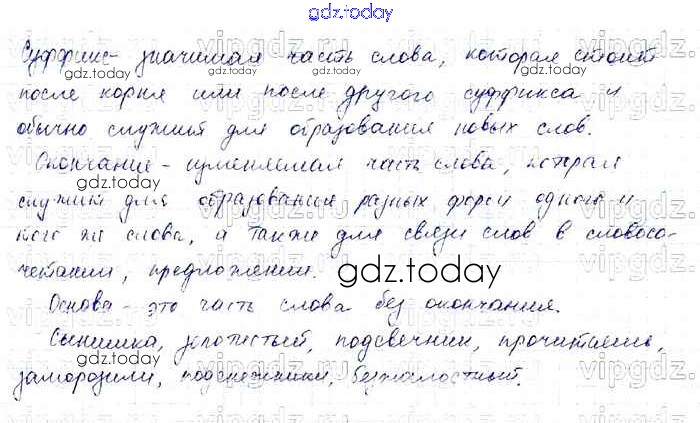 gdz.today
Суффикс - значимая часть слова, которая стоит
после корня или после другого суффикса и
обычно служит для образования новых слов.
Окончание - изменяемая часть слова, которая
служит для образования разных форм одного и
того же слова, а также для связи слов в словосо-
четании, предложении.
Основа - это часть слова без окончания.
Сынишка, золотистый, подсвечник, прочитаешь,
заморозили, подснежники, безжалостный.
gdz.today
gdz.today
gdz.today
gdz.today
gdz.today
gdz.today
gdz.today
gdz.today
vipgdz.ru